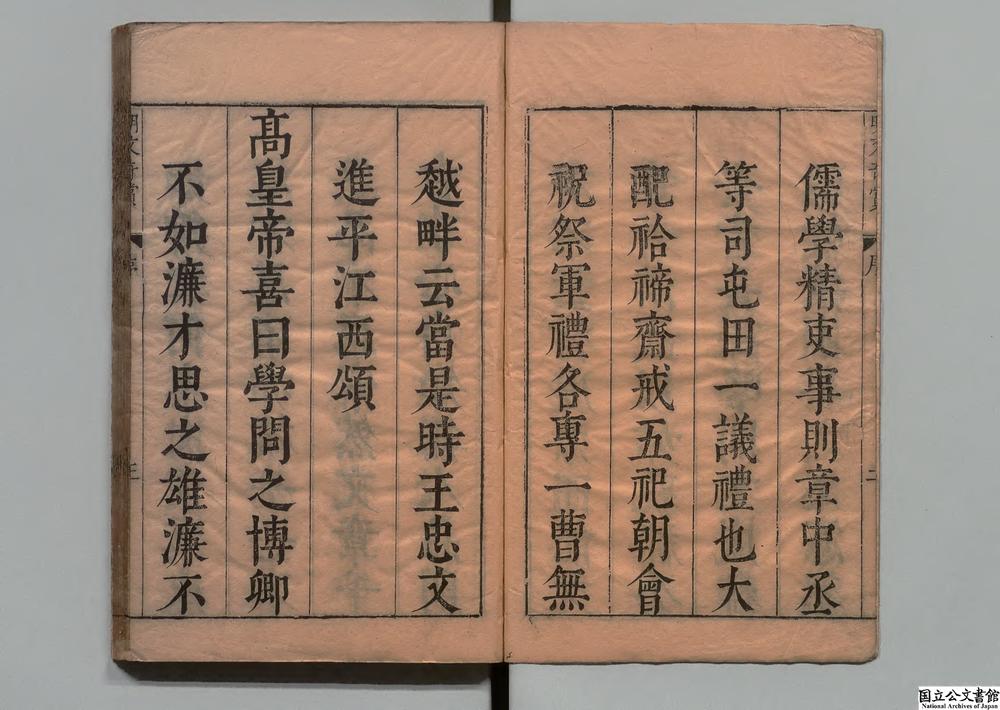 儒學精吏事則章中丞
等司屯田一議禮也大
配祫禘齋戒五祀朝會
祝祭軍禮各專一曹無
愆畔云當是時王忠文
進平江西頌
髙皇帝喜曰學問之博卿
不如濂才思之雄濂不
国立公文書館
National Archives of Japan